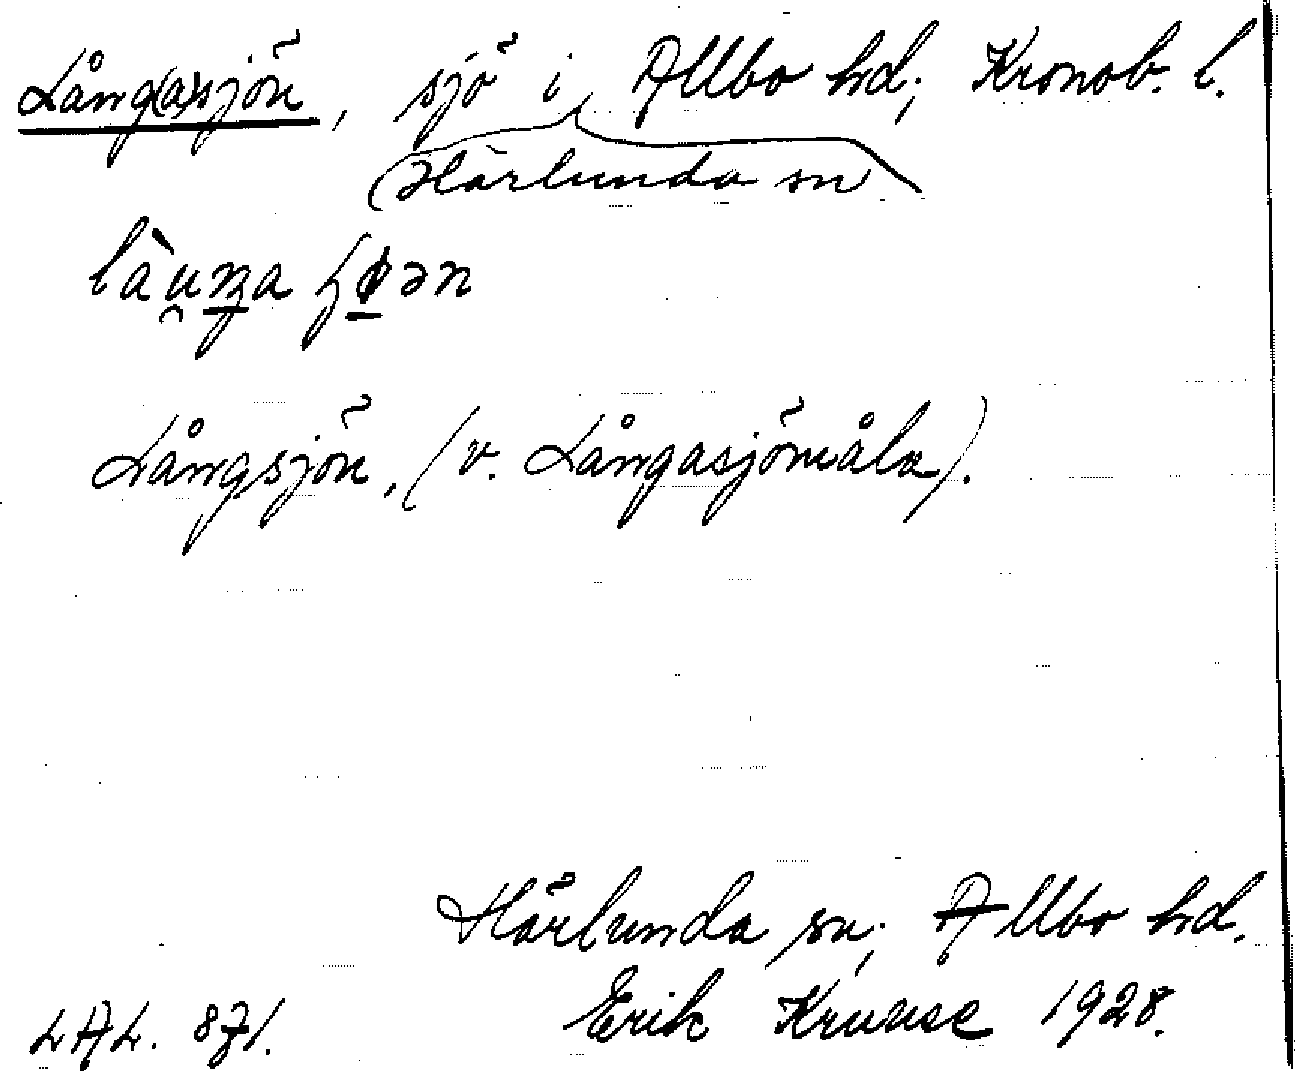 Lång(a)sjön, sjö i Allbo hd; Kronob. l.
(Härlunda sn)
Långsjön, (v. Långasjömåla).
Härlunda sn; Allbo hd.
LAL. 871. Erik Kruuse 1928.